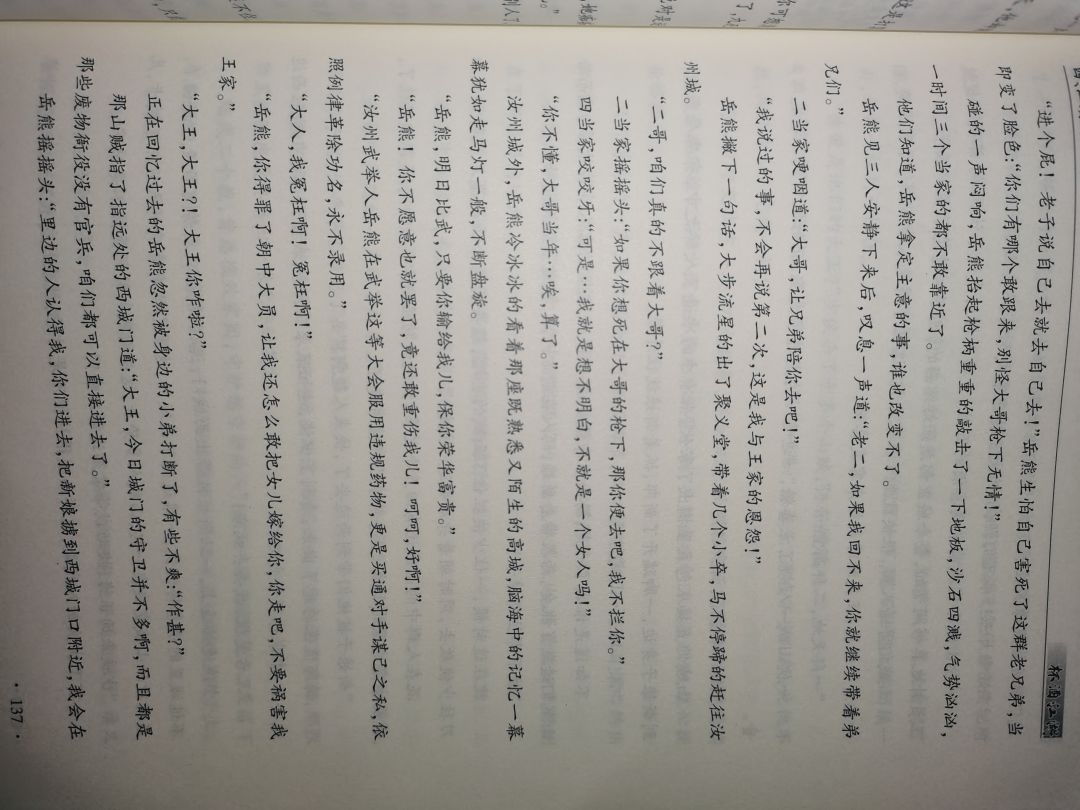 杯酒江湖
“进个屁！老子说自己去就去自己去！”岳熊生怕自己害死了这群老兄弟，当
即变了脸色：“你们有哪个敢跟来，别怪大哥枪下无情！”
碰的一声闷响，岳熊抬起枪柄重重的敲击了一下地板，沙石四溅，气势汹汹，
一时间三个当家的都不敢靠近了。
他们知道，岳熊拿定主意的事，谁也改变不了。
岳熊见三人安静下来后，叹息一声道：“老二，如果我回不来，你就继续带着弟
兄们。”
二当家哽咽道：“大哥，让兄弟陪你去吧！”
“我说过的事，不会再说第二次，这是我与王家的恩怨！”
岳熊撇下一句话，大步流星的出了聚义堂，带着几个小卒，马不停蹄的赶往汝
州城。
“二哥，咱们真的不跟着大哥？”
二当家摇摇头：“如果你想死在大哥的枪下，那你便去吧，我不拦你。”
四当家咬咬牙：“可是…我就是想不明白，不就是一个女人吗！”
“你不懂，大哥当年…唉，算了。”
汝州城外，岳熊冷冰冰的看着那座既熟悉又陌生的高城，脑海中的记忆一幕
幕犹如走马灯一般，不断盘旋。
“岳熊，明日比武，只要你输给我儿，保你荣华富贵。”
“岳熊！你不愿意也就罢了，竟还敢重伤我儿！呵呵，好啊！”
“汝州武举人岳熊在武举这等大会服用违规药物，更是买通对手谋己之私，依
照例律革除功名，永不录用。”
“大人，我冤枉啊！冤枉啊！”
“岳熊，你得罪了朝中大员，让我还怎么敢把女儿嫁给你，你走吧，不要祸害我
王家。”
“大王，大王？！大王你咋啦？”
正在回忆过去的岳熊忽然被身边的小弟打断了，有些不爽：“作甚？”
那山贼指了指远处的西城门道：“大王，今日城门的守卫并不多啊，而且都是
那些废物衙役没有官兵，咱们都可以直接进去了。”
岳熊摇摇头：“里边的人认得我，你们进去，把新娘掳到西城门口附近，我会在
·137·